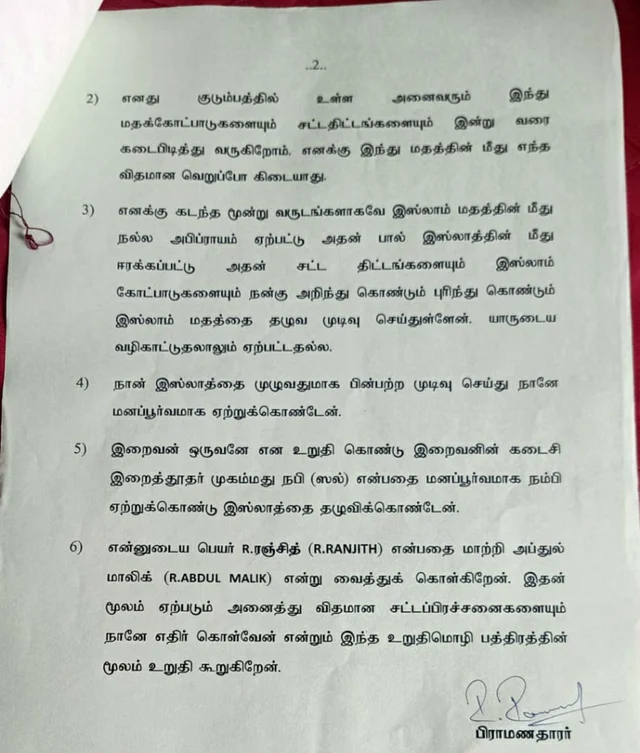 ..2..
2) எனது குடும்பத்தில் உள்ள அனைவரும் இந்து
மதக்கோட்பாடுகளையும் சட்டதிட்டங்களையும் இன்று வரை
கடைபிடித்து வருகிறோம். எனக்கு இந்து மதத்தின் மீது எந்த
விதமான வெறுப்போ கிடையாது.
3) எனக்கு கடந்த மூன்று வருடங்களாகவே இஸ்லாம் மதத்தின் மீது
நல்ல அபிப்ராயம் ஏற்பட்டு அதன் பால் இஸ்லாத்தின் மீது
ஈரக்கப்பட்டு அதன் சட்ட திட்டங்களையும் இஸ்லாம்
கோட்பாடுகளையும் நன்கு அறிந்து கொண்டும் புரிந்து கொண்டும்
இஸ்லாம் மதத்தை தழுவ முடிவு செய்துள்ளேன். யாருடைய
வழிகாட்டுதலாலும் ஏற்பட்டதல்ல.
4) நான் இஸ்லாத்தை முழுவதுமாக பின்பற்ற முடிவு செய்து நானே
மனப்பூர்வமாக ஏற்றுக்கொண்டேன்.
5) இறைவன் ஒருவனே என உறுதி கொண்டு இறைவனின் கடைசி
இறைத்தூதர் முகம்மது நபி (ஸல்) என்பதை மனப்பூர்வமாக நம்பி
ஏற்றுக்கொண்டு இஸ்லாத்தை தழுவிக்கொண்டேன்.
6) என்னுடைய பெயர் R.ரஞ்சித் (R.RANJITH) என்பதை மாற்றி அப்துல்
மாலிக் (R.ABDUL MALIK) என்று வைத்துக் கொள்கிறேன். இதன்
மூலம் ஏற்படும் அனைத்து விதமான சட்டப்பிரச்சனைகளையும்
நானே எதிர் கொள்வேன் என்றும் இந்த உறுதிமொழி பத்திரத்தின்
மூலம் உறுதி கூறுகிறேன்.
பிராமணதாரர்